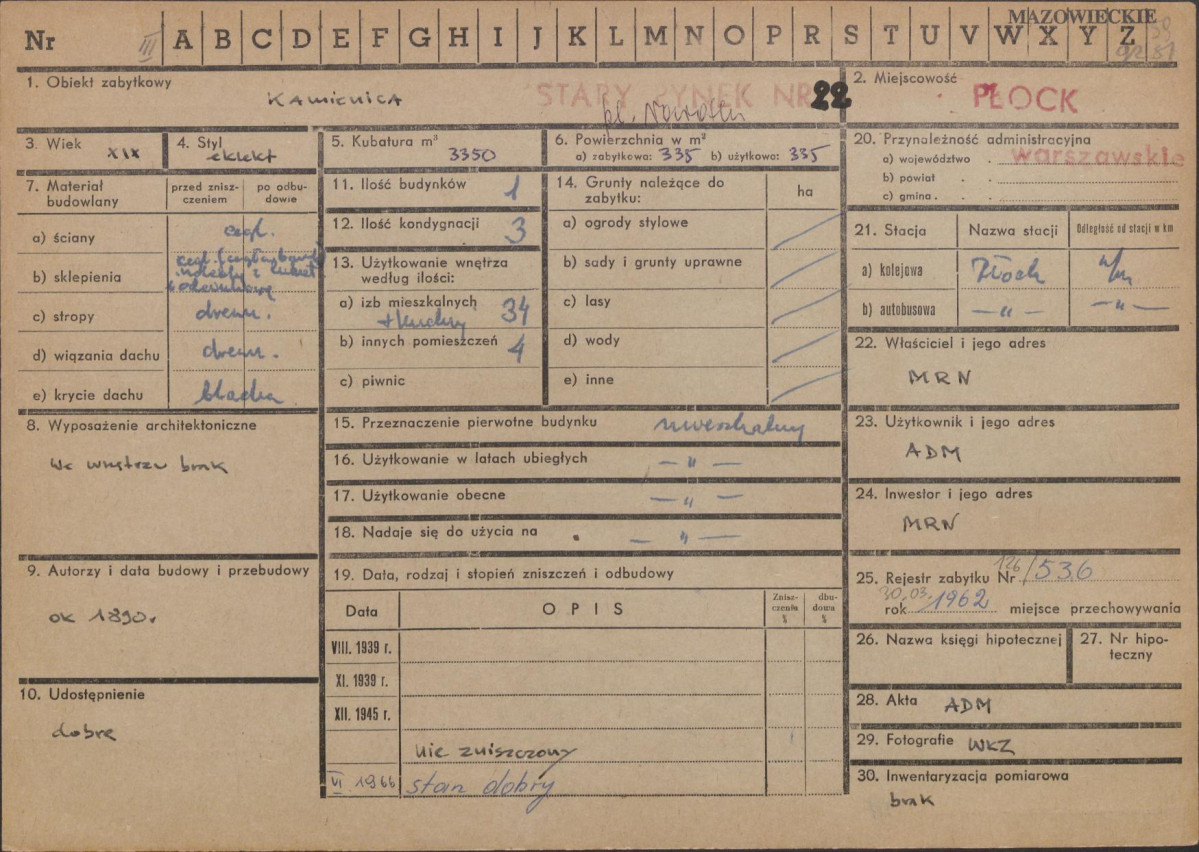 MAZOWIECKIE
Nr III A B C D E F G H I J K L M N O P R S T U V W X Y Z
1. Obiekt zabytkowy
Kamienica
STARY RYNEK NR 22
pl.
2. Miejscowość
PŁOCK
3. Wiek XIX
4. Styl eklekt
5. Kubatura m³
3350
6. Powierzchnia w m²
a) zabytkowa: 335 b) użytkowa: 335
20. Przynależność administracyjna
a) województwo warszawskie
b) powiat
c) gmina
7. Materiał budowlany
przed zniszczeniem
po odbudowie
a) ściany cegl.
b) sklepienia
c) stropy drewn.
d) wiązania dachu drewn.
e) krycie dachu blacha
11. Ilość budynków 1
12. Ilość kondygnacji 3
13. Użytkowanie wnętrza według ilości:
a) izb mieszkalnych 34
+ kuchny
b) innych pomieszczeń 4
c) piwnic
14. Grunty należące do zabytku:
ha
a) ogrody stylowe
b) sady i grunty uprawne
c) lasy
d) wody
e) inne
21. Stacja
Nazwa stacji
Odległość od stacji w km
a) kolejowa Płock w/m
b) autobusowa —„— —„—
22. Właściciel i jego adres
MRN
8. Wyposażenie architektoniczne
We wnętrzu brak
15. Przeznaczenie pierwotne budynku mieszkalny
16. Użytkowanie w latach ubiegłych —„—
17. Użytkowanie obecne —„—
18. Nadaje się do użycia na —„—
23. Użytkownik i jego adres
ADM
24. Inwestor i jego adres
MRN
9. Autorzy i data budowy i przebudowy
ok 1890r
19. Data, rodzaj i stopień zniszczeń i odbudowy
Data
OPIS
Zniszczenia %
dbudowa %
VIII. 1939 r.
XI. 1939 r.
XII. 1945 r.
nie zniszczony
VI 1966 stan dobry
25. Rejestr zabytku Nr 126/536
30.03. rok 1962 miejsce przechowywania
26. Nazwa księgi hipotecznej
27. Nr hipoteczny
10. Udostępnienie
dobre
28. Akta ADM
29. Fotografie WKZ
30. Inwentaryzacja pomiarowa
brak